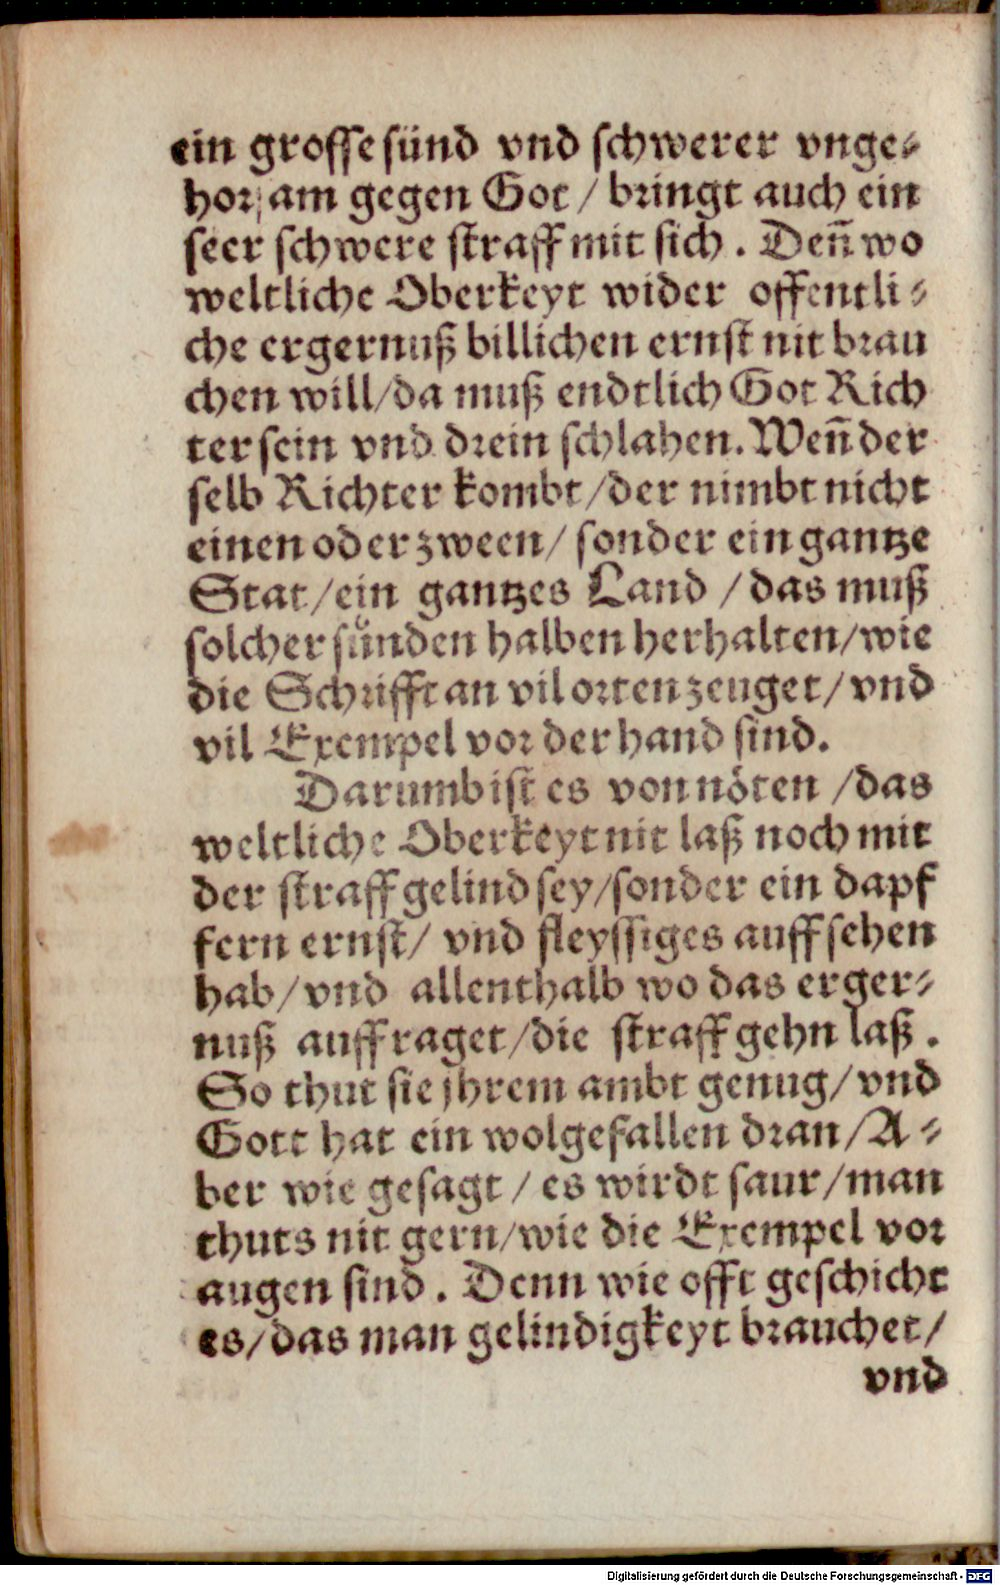 ein grosse sünd vnd schwerer vnge⸗
horsam gegen Got / bringt auch ein
seer schwere straff mit sich . Deñ wo
weltliche Oberkeyt wider offentli⸗
che ergernuß billichen ernst nit brau
chen will/da muß endtlich Got Rich
ter sein vnd drein schlahen. Weñ der
selb Richter kombt/der nimbt nicht
einen oder zween/ sonder ein gantze
Stat/ein gantzes Land / das muß
solcher sünden halben herhalten/wie
die Schrifft an vil orten zeuget/ vnd
vil Exempel vor der hand sind.
Darumb ist es von nöten /das
weltliche Oberkeyt nit laß noch mit
der straff gelind sey/sonder ein dapf
fern ernst/ vnd fleyssiges auffsehen
hab/vnd allenthalb wo das erger⸗
nuß auffraget/die straff gehn laß .
So thut sie jhrem ambt genug/vnd
Gott hat ein wolgefallen dran/A⸗
ber wie gesagt / es wirdt saur/man
thuts nit gern/wie die Exempel vor
augen sind . Denn wie offt geschicht
es/das man gelindigkeyt brauchet/
vnd
Digitalisierung gefördert durch die Deutsche Forschungsgemeinschaft - DFG